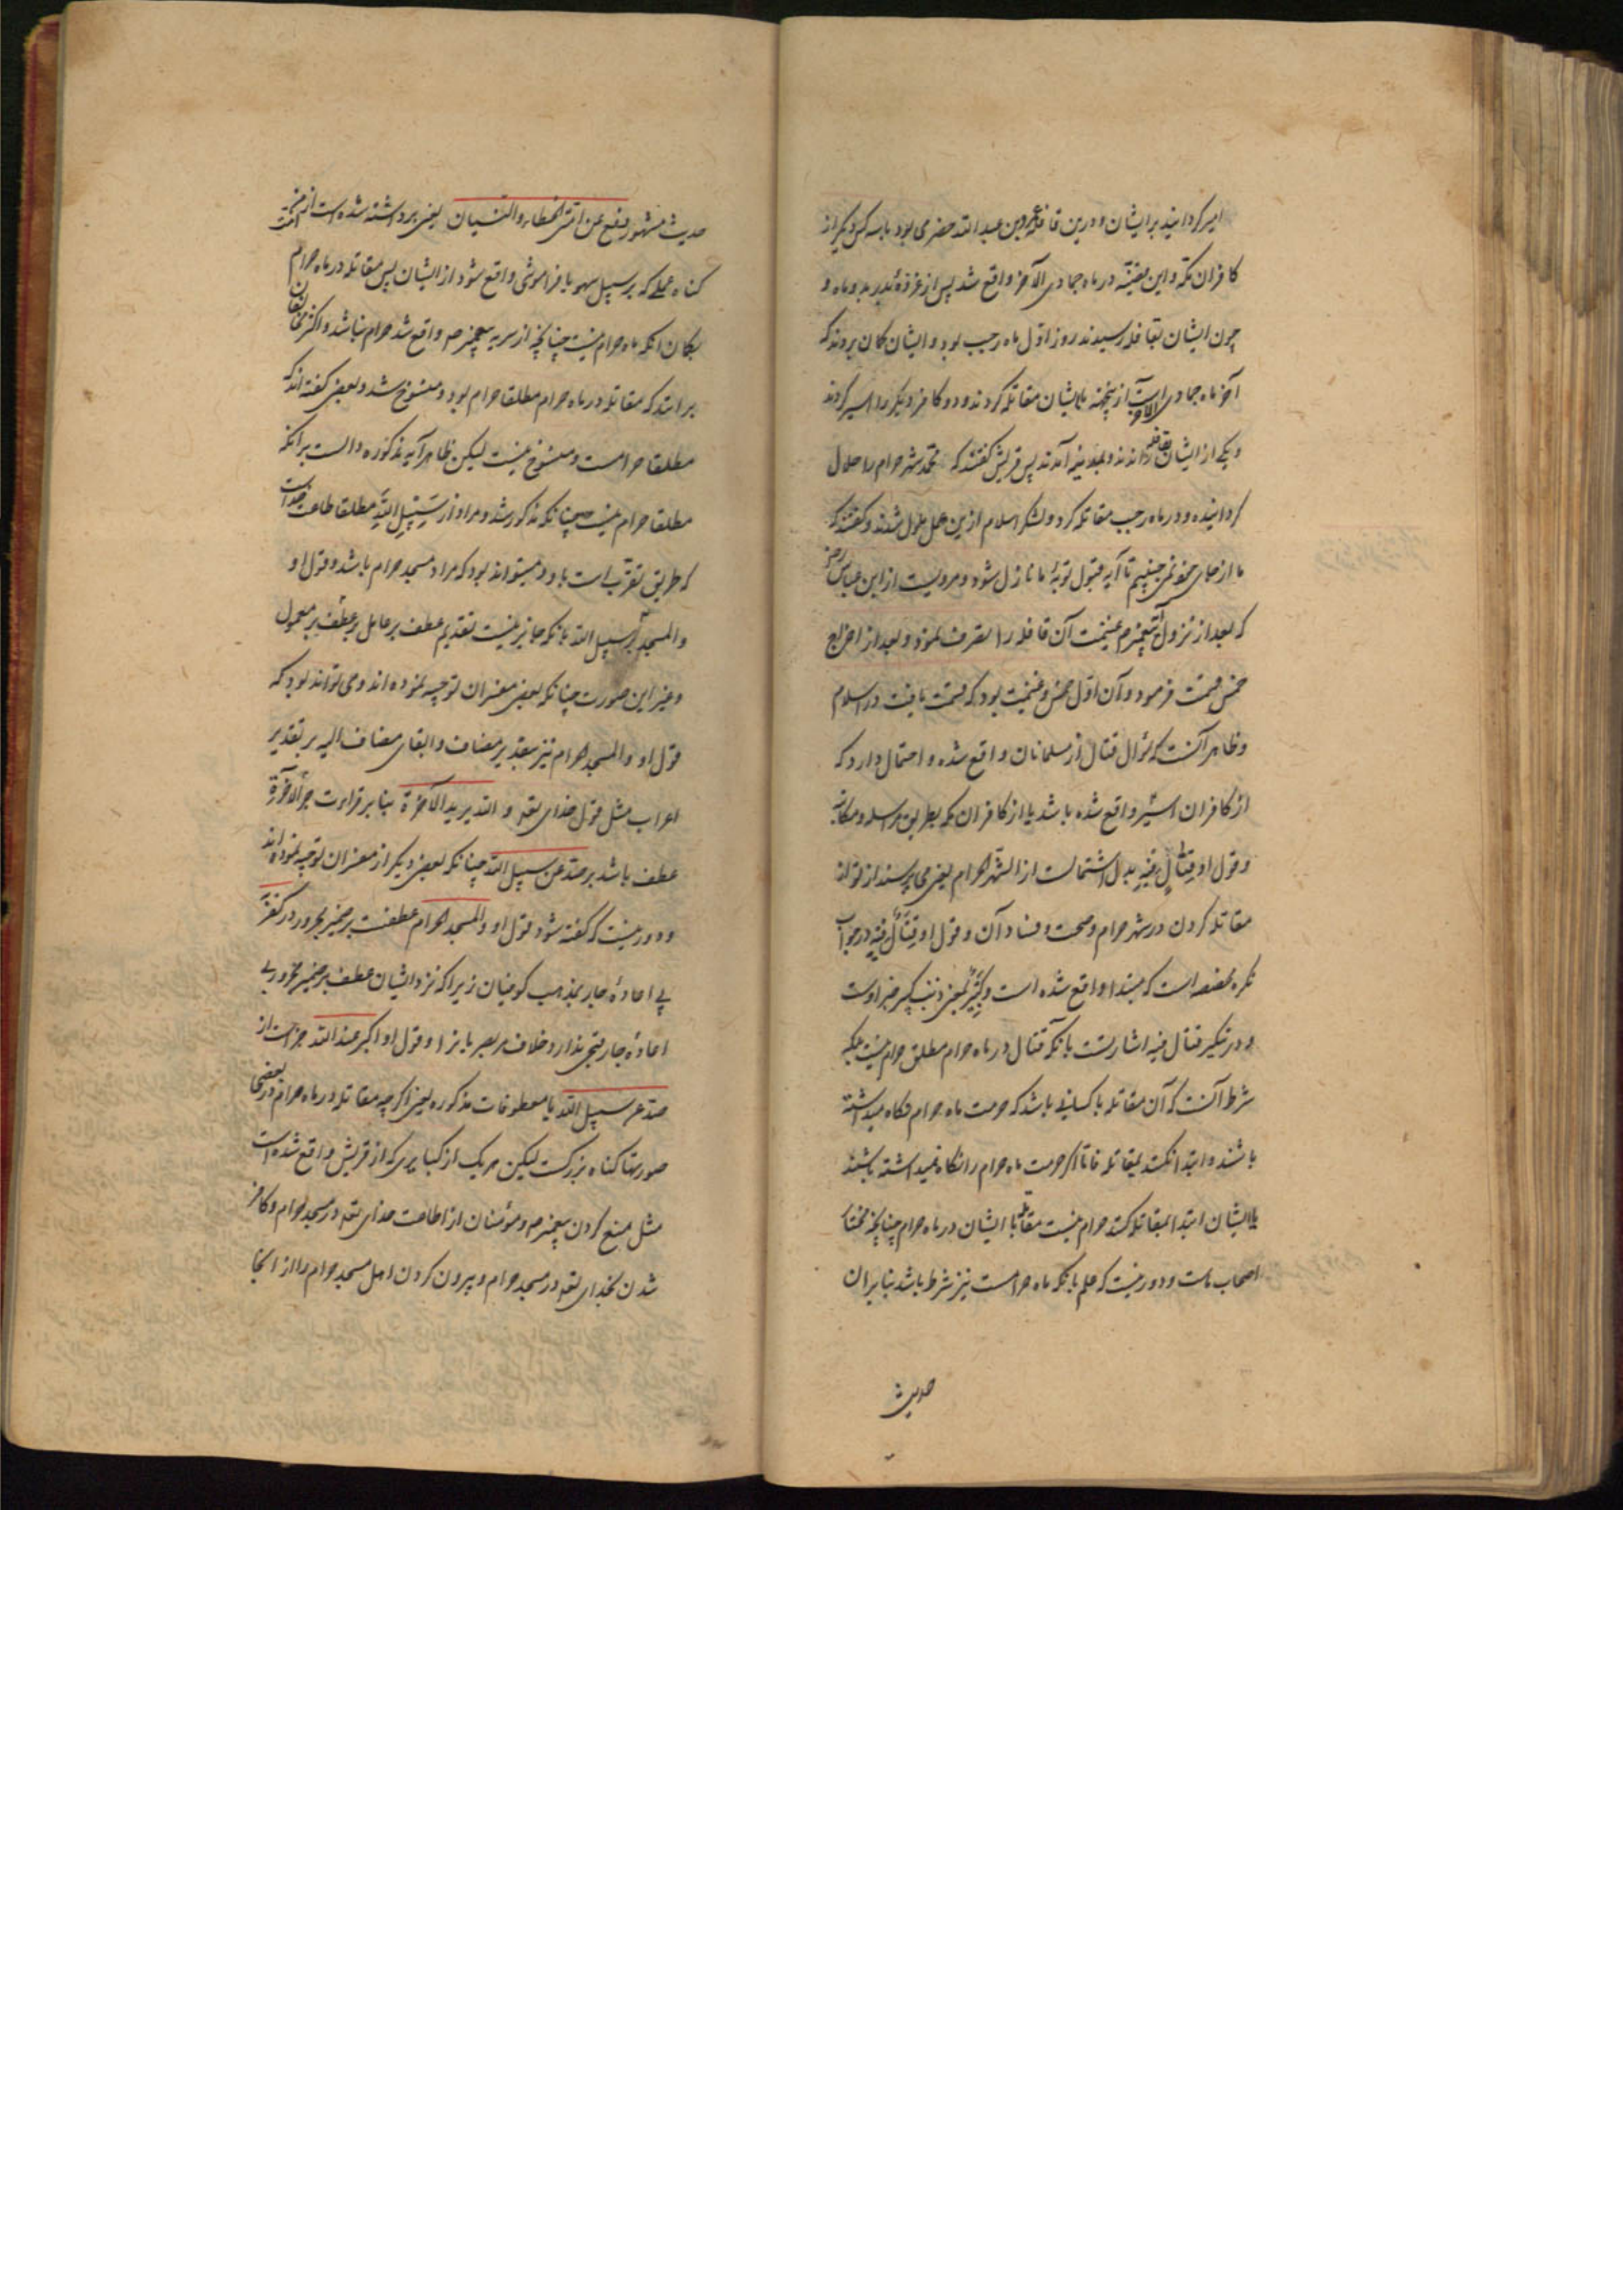 امیر کردانید بر ایشان و درین قافله عمرو بن عبد الله حضرمی بود با سه کس دیگر از
کافران مکه و این قضیه در ماه جمادی الآخر واقع شد پس از غزوهٔ بدر بدو ماه و
چون ایشان بقافله رسیدند روز اول ماه رجب بود و ایشان کمان بردند که
آخر ماه جمادی الآخر است ازینجهة با ایشان مقاتله کردند و دو کافر دیگر را اسیر کردند
و یکی از ایشان را بقتل رساندند و بمدینه آمدند پس قریش کفتند که محمد شهر حرام را حلال
کردانیده و در ماه رجب مقاتله کرد و لشکر اسلام ازین عمل ملول شدند و کفتند که
ما از جای خود نمی جنبیم تا آیه قبول توبهٔ ما نازل شود و مرویست از ابن عباس رض
که بعد از نزول آیه پیغمبر صم غنیمت آن قافله را تصرف نمود و بعد از اخراج
خمس قسمت فرمود و آن اول خمس و غنیمت بود که قسمت یافت در اسلام
و ظاهر آنست که سؤال قتال از مسلمانان واقع شده و احتمال دارد که
از کافران اسیر واقع شده باشد یا از کافران مکه بطریق مراسله و مکاتبه
و قول او قِتَالٍ فِیهِ بدل اشتمالست از الشهر الحرام یعنی می پرسند از تو از
مقاتله کردن در شهر حرام و صحت و فساد آن و قول او قِتَالٌ فِیهِ در جواب
نکره مخصصه است که مبتدا واقع شده است و کَبِیرٌ بمعنی ذنب کبیر خبر اوست
و در تنکیر قتال فیه اشارتست بآنکه قتال در ماه حرام مطلق حرام نیست بلکه
شرط آنست که آن مقاتله با کسانی باشد که حرمت ماه حرام نکاه میداشته
باشند و ابتدا نکنند بمقاتله فاما اکر حرمت ماه حرام را نکاه نمیداشته باشند
یا ایشان ابتدا بمقاتله کنند حرام نیست مقاتله با ایشان در ماه حرام چنانچه مختار
اصحاب ماست و دور نیست که علم بآنکه ماه حرامست نیز شرط باشد بنا بر آن
حدیث
حدیث مشهور رفع عن امتی الخطاء و النسیان یعنی برداشته شده است از من امت
کناه عملی که بر سبیل سهو یا فراموشی واقع شود از ایشان پس مقاتله در ماه حرام
بکمان آنکه ماه حرام نیست چنانچه از سریه پیغمبر صم واقع شد حرام نباشد و اکثر مخالفان
بر آنند که مقاتله در ماه حرام مطلقا حرام بود و منسوخ شد و بعضی کفته اند که
مطلقا حرامست و منسوخ نیست لیکن ظاهر آیه مذکوره دالست بر آنکه
مطلقا حرام نیست چنانکه مذکور شد و مراد از سَبِیلِ اللّٰهِ مطلقا طاعت خداست
که طریق تقرب است باو و میتواند بود که مراد مسجد حرام باشد و قول او
و المسجد بر سبیل الله بآنکه جایز نیست تقدیم عطف بر عامل بر عطف بر معمول
و غیر این صورت چنانکه بعضی مفسران توجیه نموده اند و می تواند بود که
قول او و المسجد الحرام نیز بتقدیر مضاف و ابقای مضاف الیه بر تقدیر
اعراب مثل قول خدای تعه و الله یرید الآخرة بنا بر قراءت جر الآخرة
عطف باشد بر صد عن سبیل الله چنانکه بعضی دیکر از مفسران توجیه نموده اند
و دور نیست که کفته شود قول او و المسجد الحرام عطفست بر ضمیر مجرور در کفر به
بی اعادهٔ جار بمذهب کوفیان زیرا که نزد ایشان عطف بر ضمیر مجرور بی
اعادهٔ جار قبحی ندارد خلاف مر بصریان را و قول او اکبر عند الله خبر است از
صد عن سبیل الله با معطوفات مذکوره یعنی اکرچه مقاتله در ماه حرام در بعضی
صورتها کناه بزرکست لیکن هر یک از کبایری که از قریش واقع شده است
مثل منع کردن پیغمبر صم و مؤمنان از اطاعت خدای تعه در مسجد حرام و کافر
شدن بخدای تعه در مسجد حرام و بیرون کردن اهل مسجد حرام را از آنجا